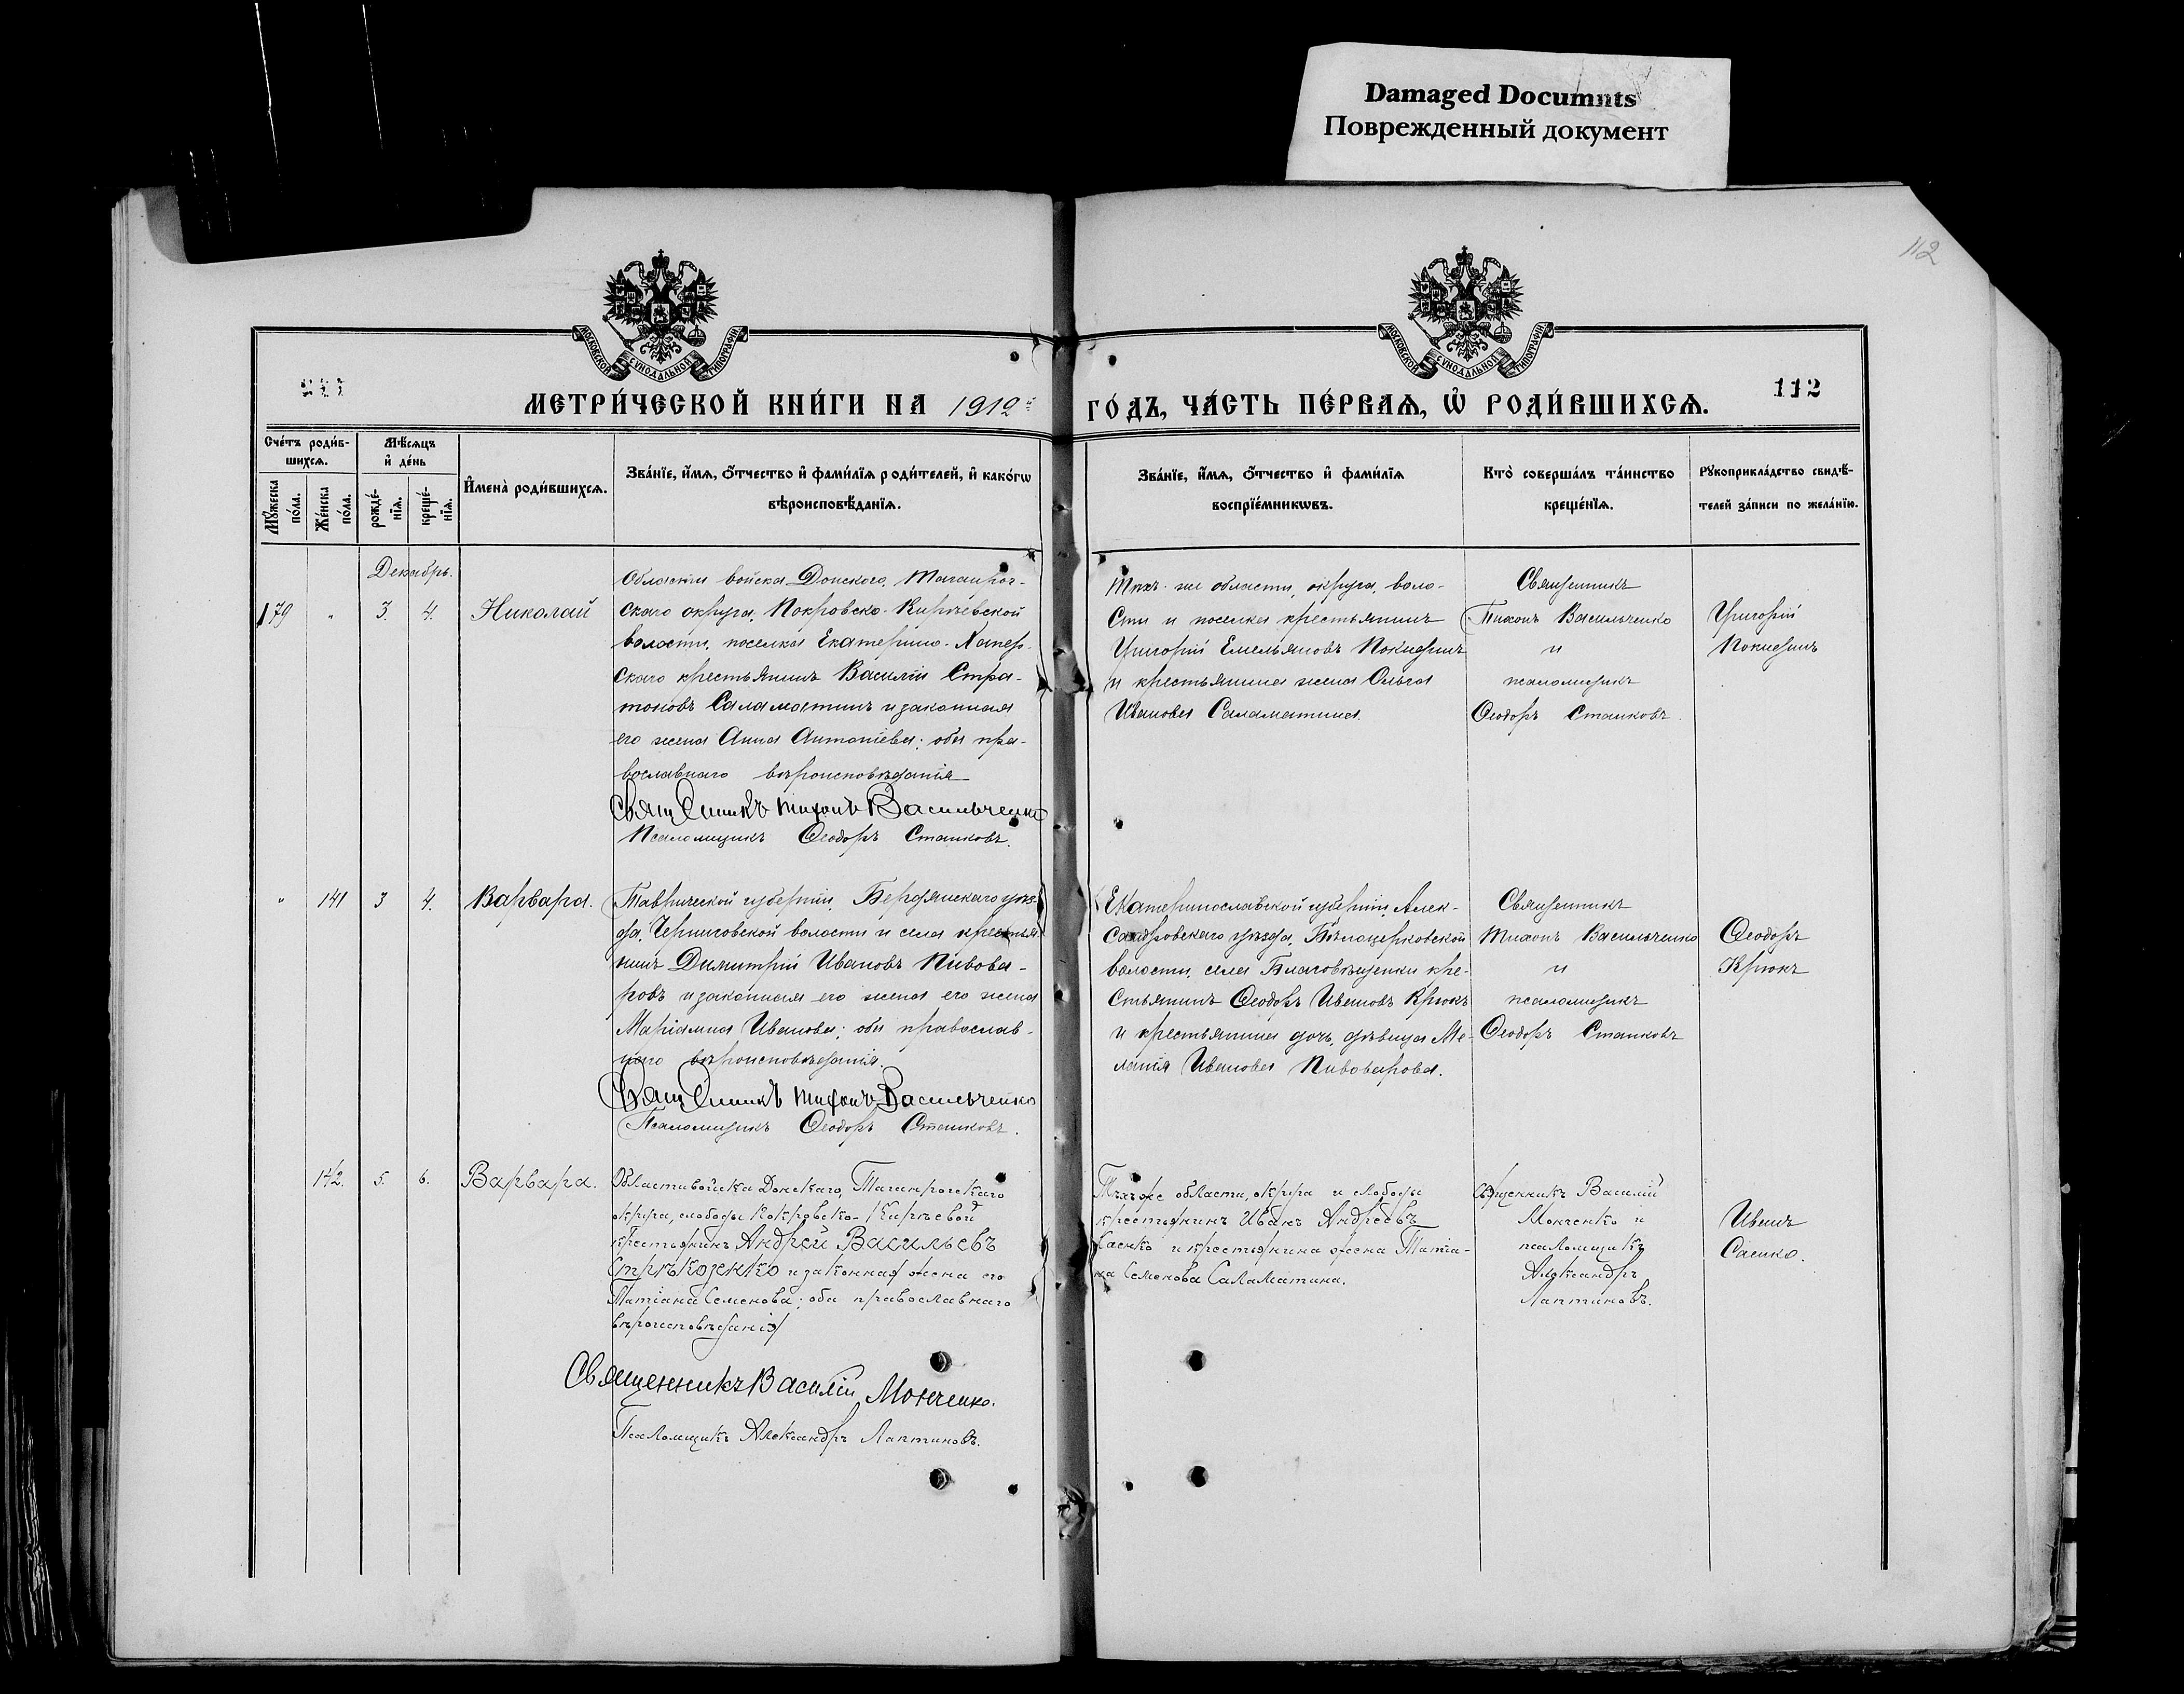 Damaged Documnts
Поврежденный документ
112
МОСКОВСКОЙ СѴНОДАЛЬНОЙ ТИПОГРАФІИ
МОСКОВСКОЙ СѴНОДАЛЬНОЙ ТИПОГРАФІИ
МЕТРИ́ЧЕСКОЙ КНИ́ГИ НА 1912й ГО́ДЪ, ЧА́СТЬ ПЕ́РВАѦ, Ѡ҆ РОДИ́ВШИХСѦ.
112
Сче́тъ роди́в-
шихсѧ.
Мѣ́сѧцъ
и҆ де́нь
И҆мена̀ роди́вшихсѧ.
Зва́нїе, и҆́мѧ, ѻ҆́тчество и҆ фами́лїѧ роди́телей, и҆ како́гѡ
вѣроисповѣ́данїѧ.
Зва́нїе, и҆́мѧ, ѻ҆́тчество и҆ фами́лїѧ
воспрїе́мникѡвъ.
Кто̀ соверша́лъ та́инство
креще́нїѧ.
Рꙋкоприкла́дство свидѣ́-
телей за́писи по жела́нїю.
Мꙋ́жеска
по́ла.
Же́нска
по́ла.
рожде́-
нїѧ.
креще́-
нїѧ.
Декабрь.
179 " 3. 4. Николай
Области войска Донского, Таганрог-
скаго округа, Покровско-Кирѣевской
волости, поселка Екатерино-Хапер-
скаго крестьянинъ Василій Стра-
тоновъ Саламатинъ и законная
его жена Анна Антоніева; оба пра-
вославнаго вѣроисповѣданія
Священникъ Тихонъ Васильченко
Псаломщикъ Ѳеодоръ Станковъ.
Тѣхъ-же области, округа, воло-
сти и поселка крестьянинъ
Григорій Емельяновъ Покидинъ
и крестьянина жена Ольга
Иванова Саламатина.
Священникъ
Тихонъ Васильченко
и
псаломщикъ
Ѳеодоръ Станковъ.
Григорій
Покидинъ
" 141 3 4. Варвара.
Таврической губерніи, Бердянскаго уѣз-
да, Черниговской волости и села крестья-
нинъ Димитрій Ивановъ Пивова-
ровъ и законная его жена его жена
Маріамна Иванова; оба православ-
наго вѣроисповѣданія.
Священникъ Тихонъ Васильченко
Псаломщикъ Ѳеодоръ Станковъ.
Екатеринославской губерніи, Алек-
сандровскаго уѣзда, Бѣлоцерковской
волости, села Благовѣщенки кре-
стьянинъ Ѳеодоръ Ивановъ Крюкъ
и крестьянина дочь, дѣвица Ме-
ланія Иванова Пивоварова.
Священникъ
Тихонъ Васильченко
и
псаломщикъ
Ѳеодоръ Станковъ
Ѳеодоръ
Крюкъ
142. 5. 6. Варвара.
Области войска Донскаго, Таганрогскаго
округа, слободы Покровско-Кирѣевой
крестьянинъ Андрей Васильевъ
Стрѣкозенко и законная жена его
Татіана Семенова; оба православнаго
вѣроисповѣданія
Священникъ Василій Монченко.
Псаломщикъ Александръ Лаптиновъ.
Тѣхъ же области, округа и слободы
крестьянинъ Иванъ Андреевъ
Саенко и крестьянина жена Татіа-
на Семенова Саламатина.
Священникъ Василій
Монченко и
псаломщикъ
Александръ
Лаптиновъ.
Иванъ
Саенко.